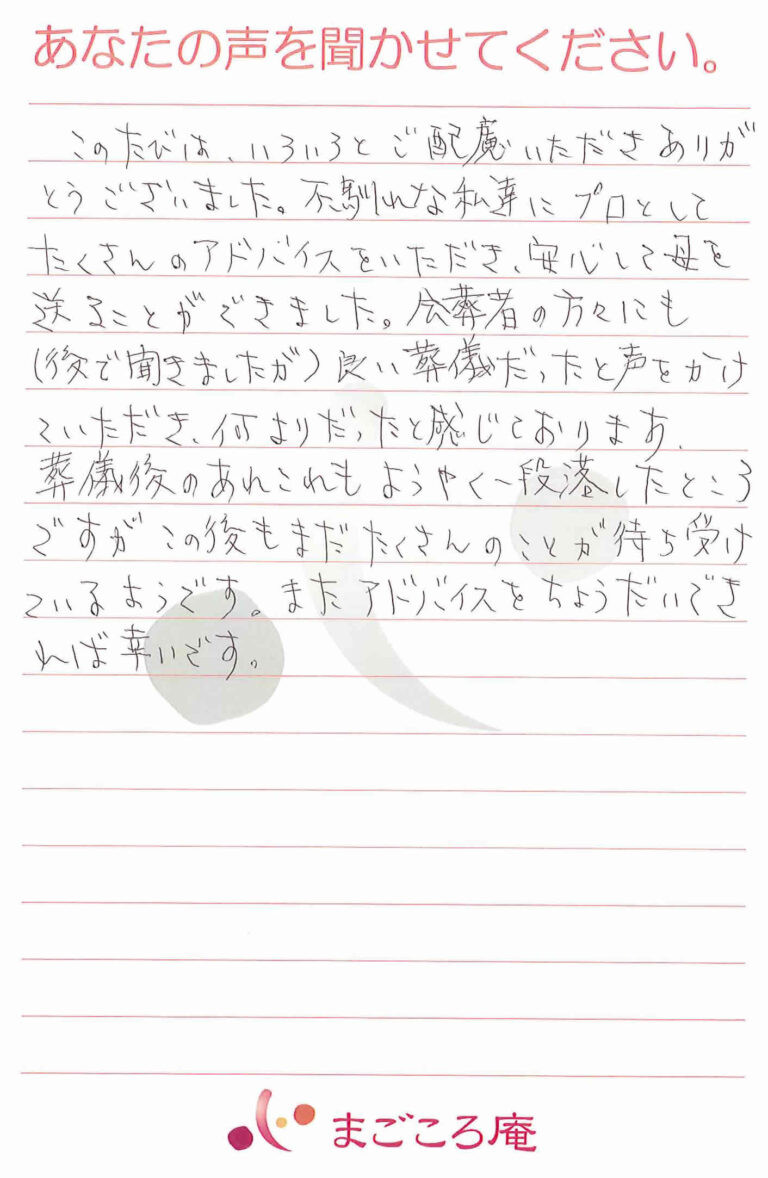 あなたの声を聞かせてください。
このたびは、いろいろとご配慮いただきありが
とうございました。不馴れな私達にプロとして
たくさんのアドバイスをいただき、安心して母を
送ることができました。会葬者の方々にも
(後で聞きましたが)良い葬儀だったと声をかけ
ていただき、何よりだったと感じております。
葬儀後のあれこれもようやく一段落したところ
ですがこの後もまだたくさんのことが待ち受け
ているようです。またアドバイスをちょうだいでき
れば幸いです。
まごころ庵